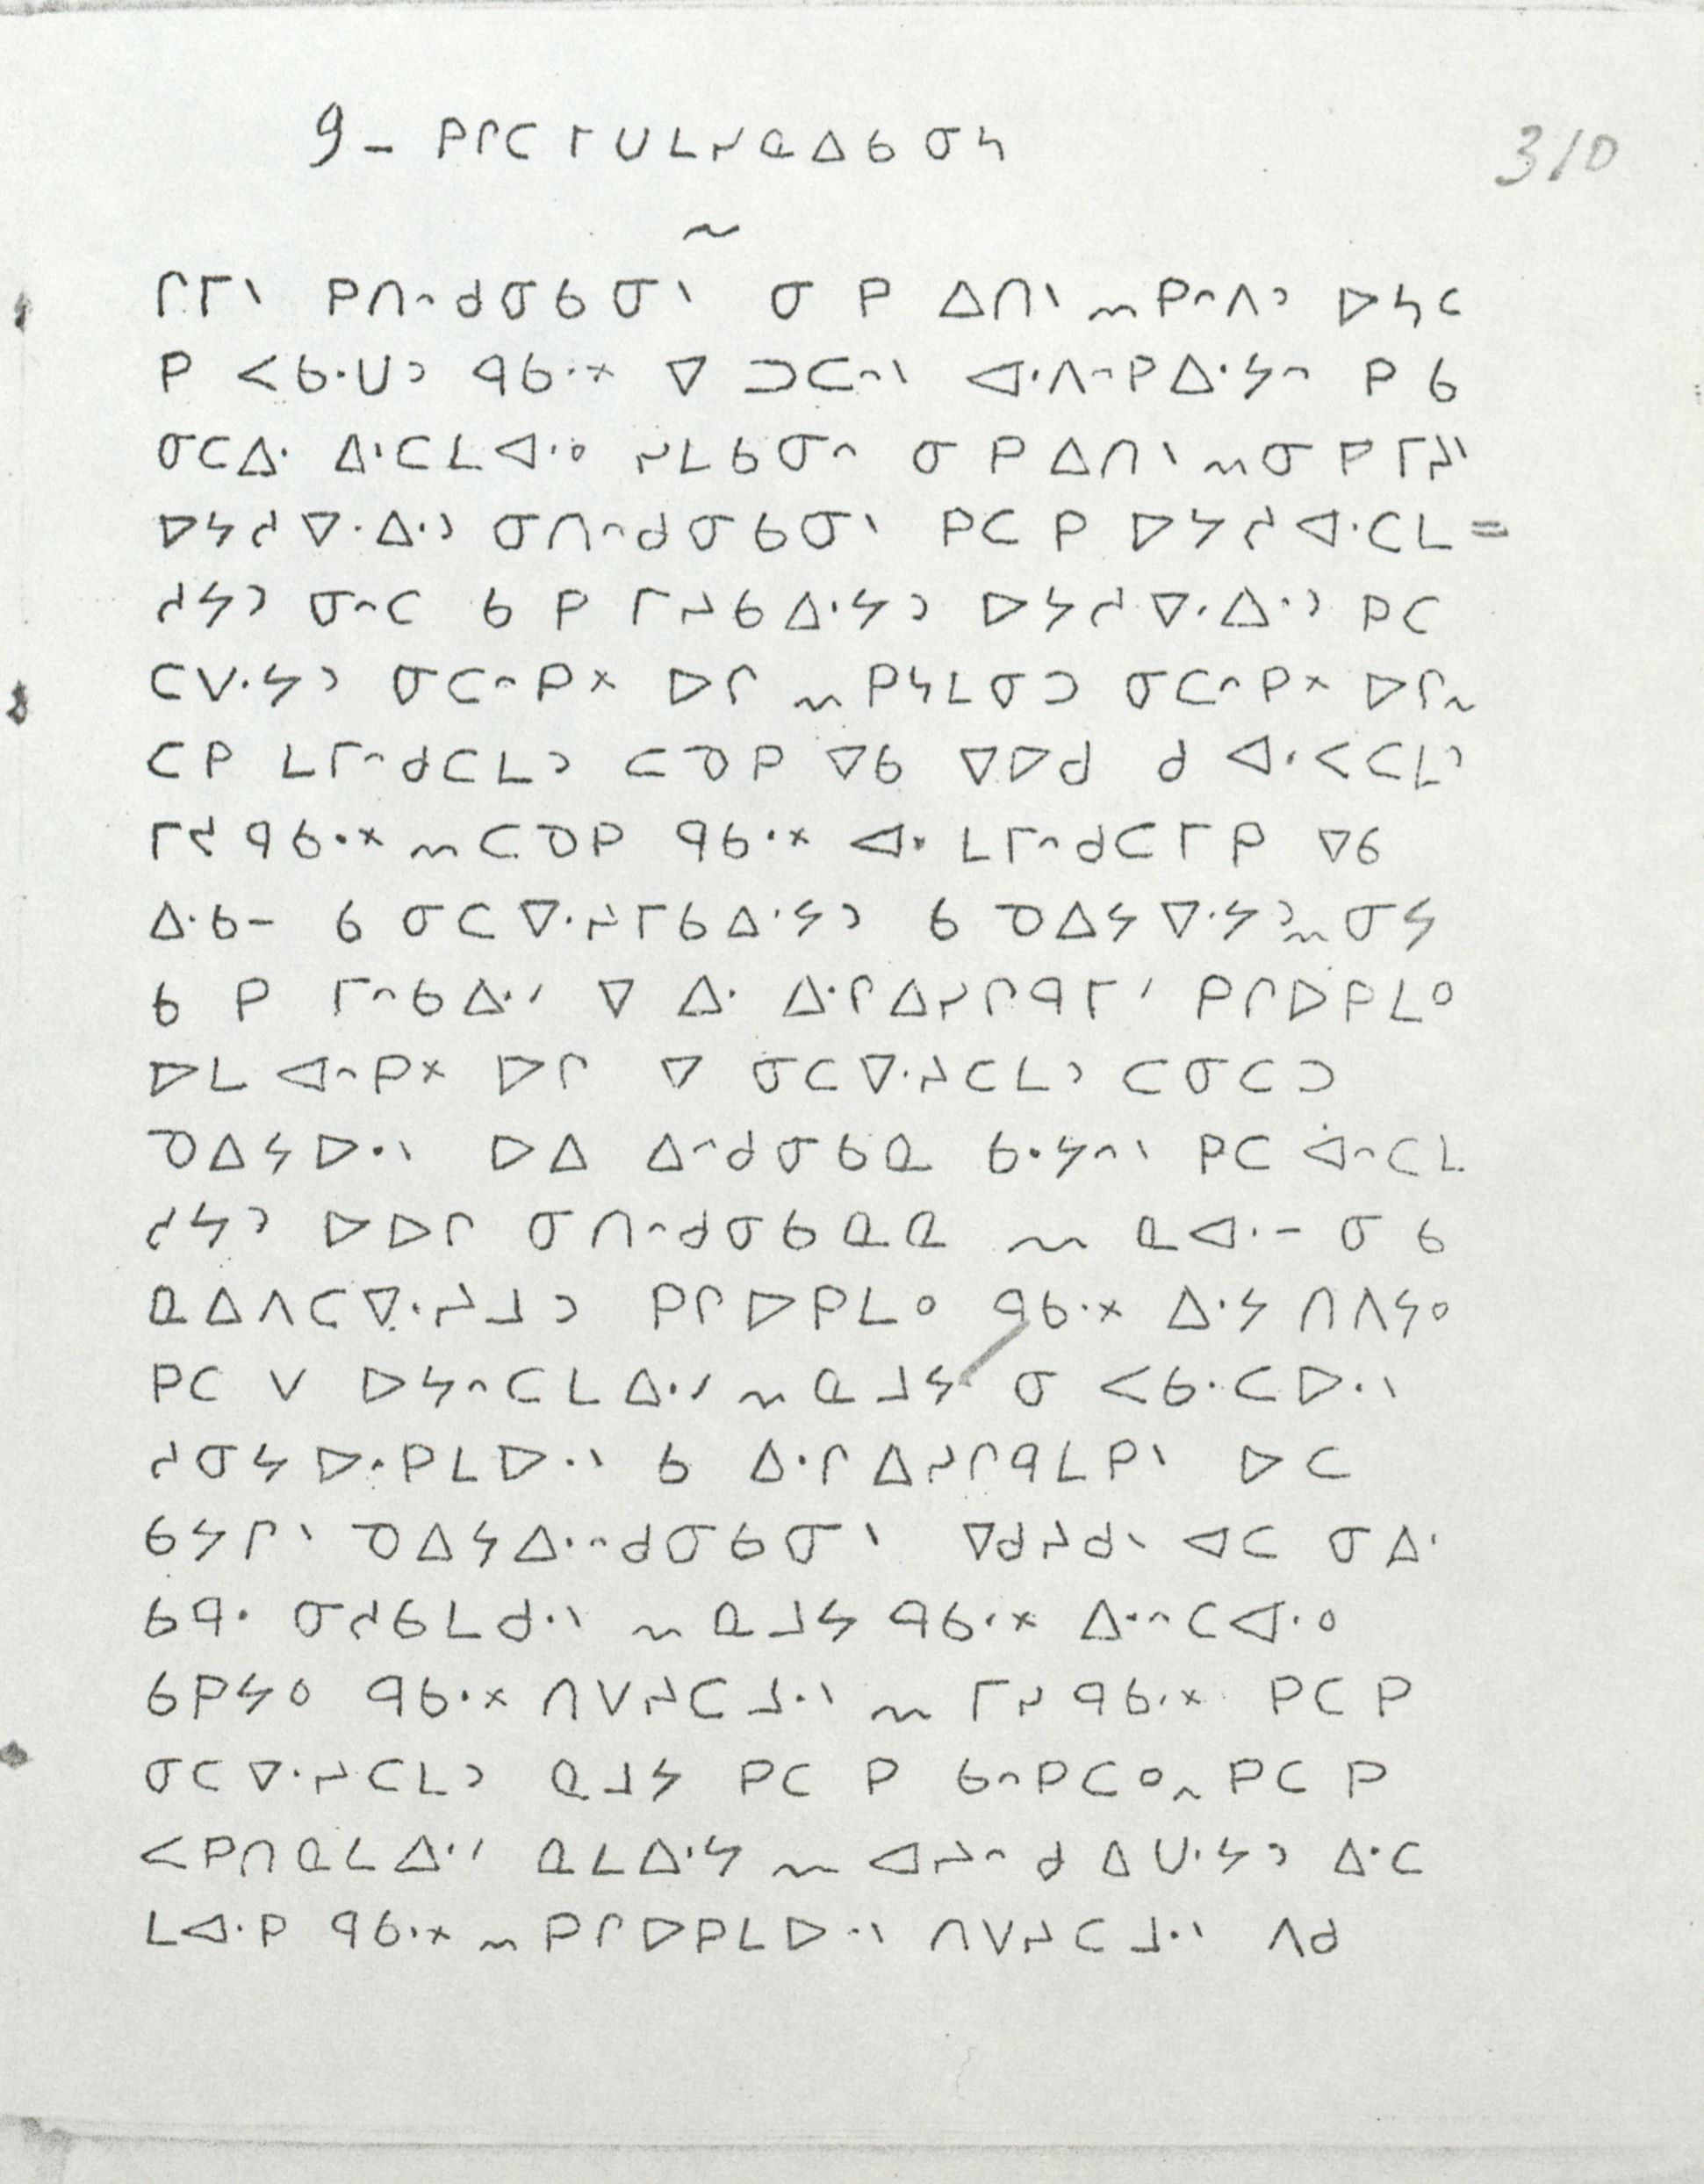 9 - ᑭᒋᑕ ᒥᑌᒪᓯᓇᐃᑲ ᓂᓴ
310
ᒋᒥᐠ ᑭᑎᐢᑯᓂᑲᓂᐠ ᓂ ᑭ ᐃᑎᐠ ~ ᑭᐢᐱᐣ ᐅᓴᑕ
ᑭ ᐸᑲᐧᑌᐣ ᑫᑲᐧᕽ ᐁ ᑐᑕᐢᐠ ᐊᐧᐱᐢᑭᐃᐧᔭᐢ ᑭ ᑲ
ᓂᑕᐃᐧ ᐃᐧᑕᒪᐊᐧᐤ ᓯᒪᑲᓂᐢ ᓂ ᑭ ᐃᑎᐠ ~ ᓂ ᑭ ᒥᔨᐠ
ᐅᔭᓱᐁᐧᐃᐧᐣ ᓂᑎᐢᑯᓂᑲᓂᐠ ᑭᑕ ᑭ ᐅᔭᓱᐊᐧᑕᒪ =
ᓱᔭᐣ ᓂᐢᑕ ᑲ ᑭ ᒥᔨᑲᐃᐧᔭᐣ ᐅᔭᓱᐁᐧᐃᐧᐣ ᑭᑕ
ᑕᐯᐧᔭᐣ ᓂᑕᐢᑭᕽ ᐅᒋ ~ ᑭᓴᒪᓂᑐ ᓂᑕᐢᑭᕽ ᐅᒋ ~
ᑕᑭ ᒪᒥᐢᑯᑕᒪᐣ ᑕᓀᑭ ᐁᑲ ᐁᐅᑯ ᑯ ᐊᐧᐸᑕᒪᐣ
ᒥᓱ ᑫᑲᐧᕽ ~ ᑕᓀᑭ ᑫᑲᐧᕽ ᐊᐧ ᒪᒥᐢᑯᑕᒥᑭ ᐁᑲ
ᐃᐧᑲ - ᑲ ᓂᑕᐁᐧᔨᒥᑲᐃᐧᔭᐣ ᑲ ᓀᐃᔭᐁᐧᔭᐣ ~ ᓂᔭ
ᑲ ᑭ ᒥᐢᑲᐃᐧᐟ ᐁ ᐃᐧ ᐃᐧᒋᐃᓯᒋᑫᒥᐟ ᑭᒋᐅᑭᒪᐤ
ᐅᒪ ᐊᐢᑭᕽ ᐅᒋ ᐁ ᓂᑕᐁᐧᔨᑕᒪᐣ ᑕᓂᑕᑐ
ᓀᐃᔭᐅᐧᐠ ᐅᐃ ᐃᐢᑯᓂᑲᓇ ᑲᐧᔭᐢᐠ ᑭᑕ ᐊᐢᑕᒪ
ᓱᔭᐣ ᐅᐅᒋ ᓂᑎᐢᑯᓂᑲᓇᓇ ~ ᓇᐊᐧ - ᓂ ᑲ
ᓇᐃᐱᑕᐁᐧᔨᒧᐣ ᑭᒋᐅᑭᒪᐤ ᑫᑲᐧᕽ ᐃᐧᔭ ᑎᐱᔭᐤ
ᑭᑕ ᐯ ᐅᔭᐢᑕᒪᐃᐧᐟ ~ ᓇᒧᔭ ᓂ ᐸᑲᐧᑕᐅᐧᐠ
ᓱᓂᔭᐅᐧᑭᒪᐅᐧᐠ ᑲ ᐃᐧᒋᐃᓯᒋᑫᒪᑭᐠ ᐅᑕ
ᑲᔭᒋᐠ ᓀᐃᔭᐃᐧᐢᑯᓂᑲᓂᐠ ᐁᑯᓯᑯᐠ ᐊᑕ ᓂᐃᐧ
ᑲᑫᐧ ᓂᓱᑲᒪᑯᐧᐠ ~ ᓇᒧᔭ ᑫᑲᐧᕽ ᐃᐧᐢᑕᐊᐧᐤ
ᑲᑭᔭᐤ ᑫᑲᐧᕽ ᑎᐯᔨᑕᒧᐧᐠ ~ ᒥᓯ ᑫᑲᐧᕽ ᑭᑕ ᑭ
ᓂᑕᐁᐧᔨᑕᒪᐣ ᓇᒧᔭ ᑭᑕ ᑭ ᑲᐢᑭᑕᐤ ~ ᑭᑕ ᑭ
ᐸᑭᑎᓇᒪᐃᐧᐟ ᓇᒪᐃᐧᔭ ~ ᐊᔨᐢ ᑯ ᐃᑌᐧᔭᐣ ᐃᐧᑕ
ᒪᐊᐧᑭ ᑫᑲᐧᕽ ~ ᑭᒋᐅᑭᒪᐅᐧᐠ ᑎᐯᔨᑕᒧᐧᐠ ᐱᑯ